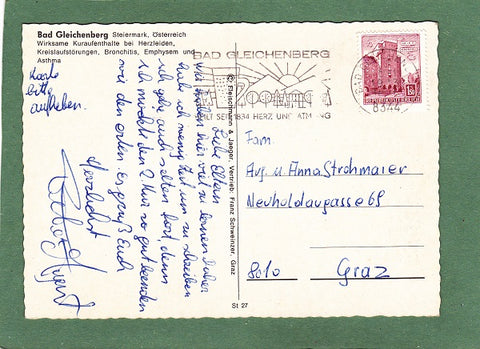 Bad Gleichenberg Steiermark, Österreich
Wirksame Kuraufenthalte bei Herzleiden,
Kreislaufstörungen, Bronchitis, Emphysem und
Asthma
Karte
bitte
aufheben.
Liebe Eltern
wir haben hier viel zu lernen daher
habe ich wenig Zeit um zu schreiben
ich gehe auch selten fort, denn
ich möchte den 2 Kurs so gut beenden
wie den ersten Es grüßt Euch
Herzlichst
© Fleischmann & Jaeger, Vertrieb: Franz Schweinzer, Graz
St 27
BAD GLEICHENBERG
SEIT 1834 HERZ UND ATMUNG
8344
REPUBLIK ÖSTERREICH
Fam.
Aug. u. Anna Strohmaier
Neuholdaugasse 69
8010 Graz